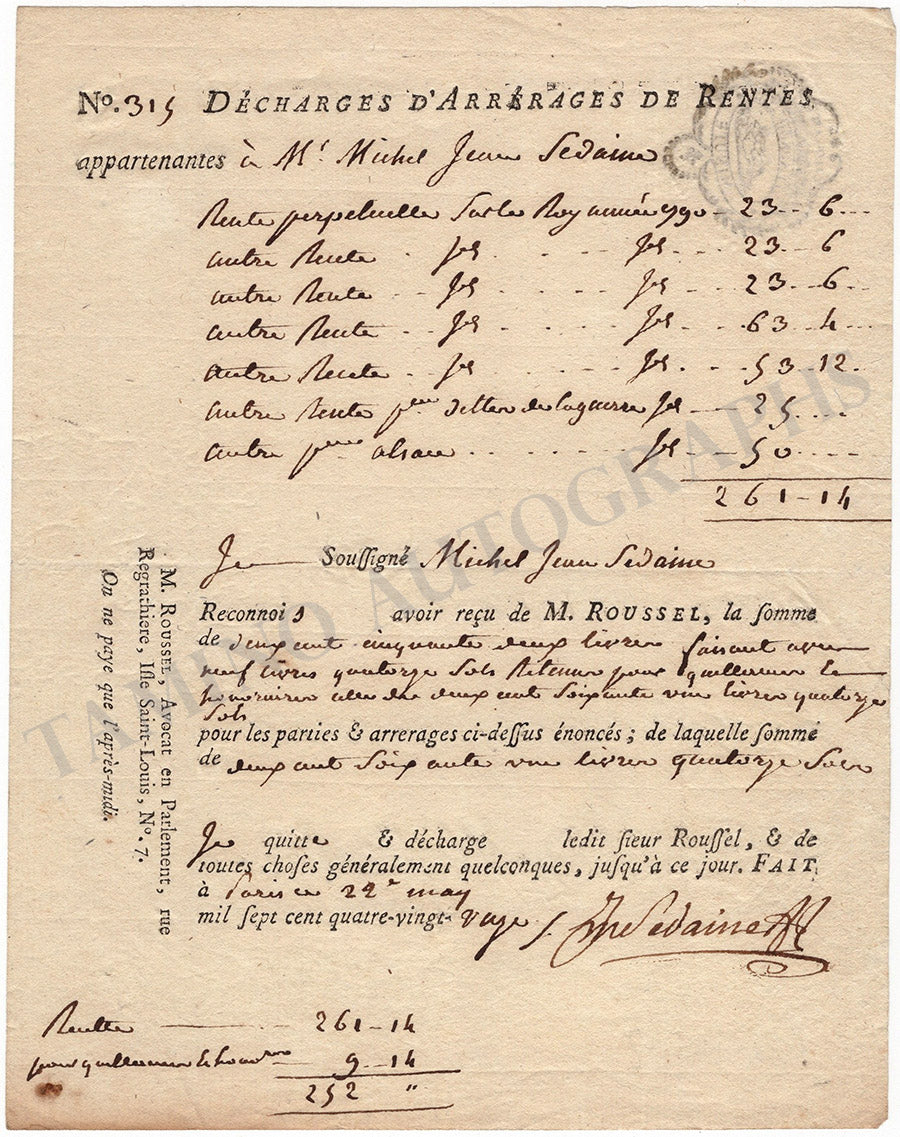 No. 315 DÉCHARGES D'ARRÉRAGES DE RENTES
appartenantes à Mr. Michel Jean Sedaine
Rente perpetuelle sur le Roy année 1790 - 23 - 6
autre Rente . Jd . . . . . Jd - 23 - 6
autre Rente . Jd . . . . . Jd - 23 - 6
autre Rente . Jd . . . . . Jd - 63 - 4
autre Rente . Jd . . . . . Jd - 53 - 12
autre Rente pceu dettes de la guerre Jd - 25
autre alsace . . . . Jd - 50
261 - 14
Je Soussigné Michel Jean Sedaine
Reconnois avoir reçu de M. ROUSSEL, la somme
de deux cent cinquante deux livres faisant avec
neuf livres quatorze sols Retenus pour quillemens le
honoraires celle de deux cent soixante une livres quatorze
sols
pour les parties & arrerages ci-dessus énoncés ; de laquelle somme
de deux cent soixante une livres quatorze sols
Je quitte & décharge ledit sieur Roussel, & de
toutes choses généralement quelconques, jusqu'à ce jour. FAIT
à Paris ce 22e may
mil sept cent quatre-vingt-onze /. Sedaine
M. ROUSSEL, Avocat en Parlement, rue
Regrathiere, Isle Saint-Louis, No. 7.
On ne paye que l'après-midi.
Rentte - 261 - 14
9 - 14
252 "
TAMINO AUTOGRAPHS